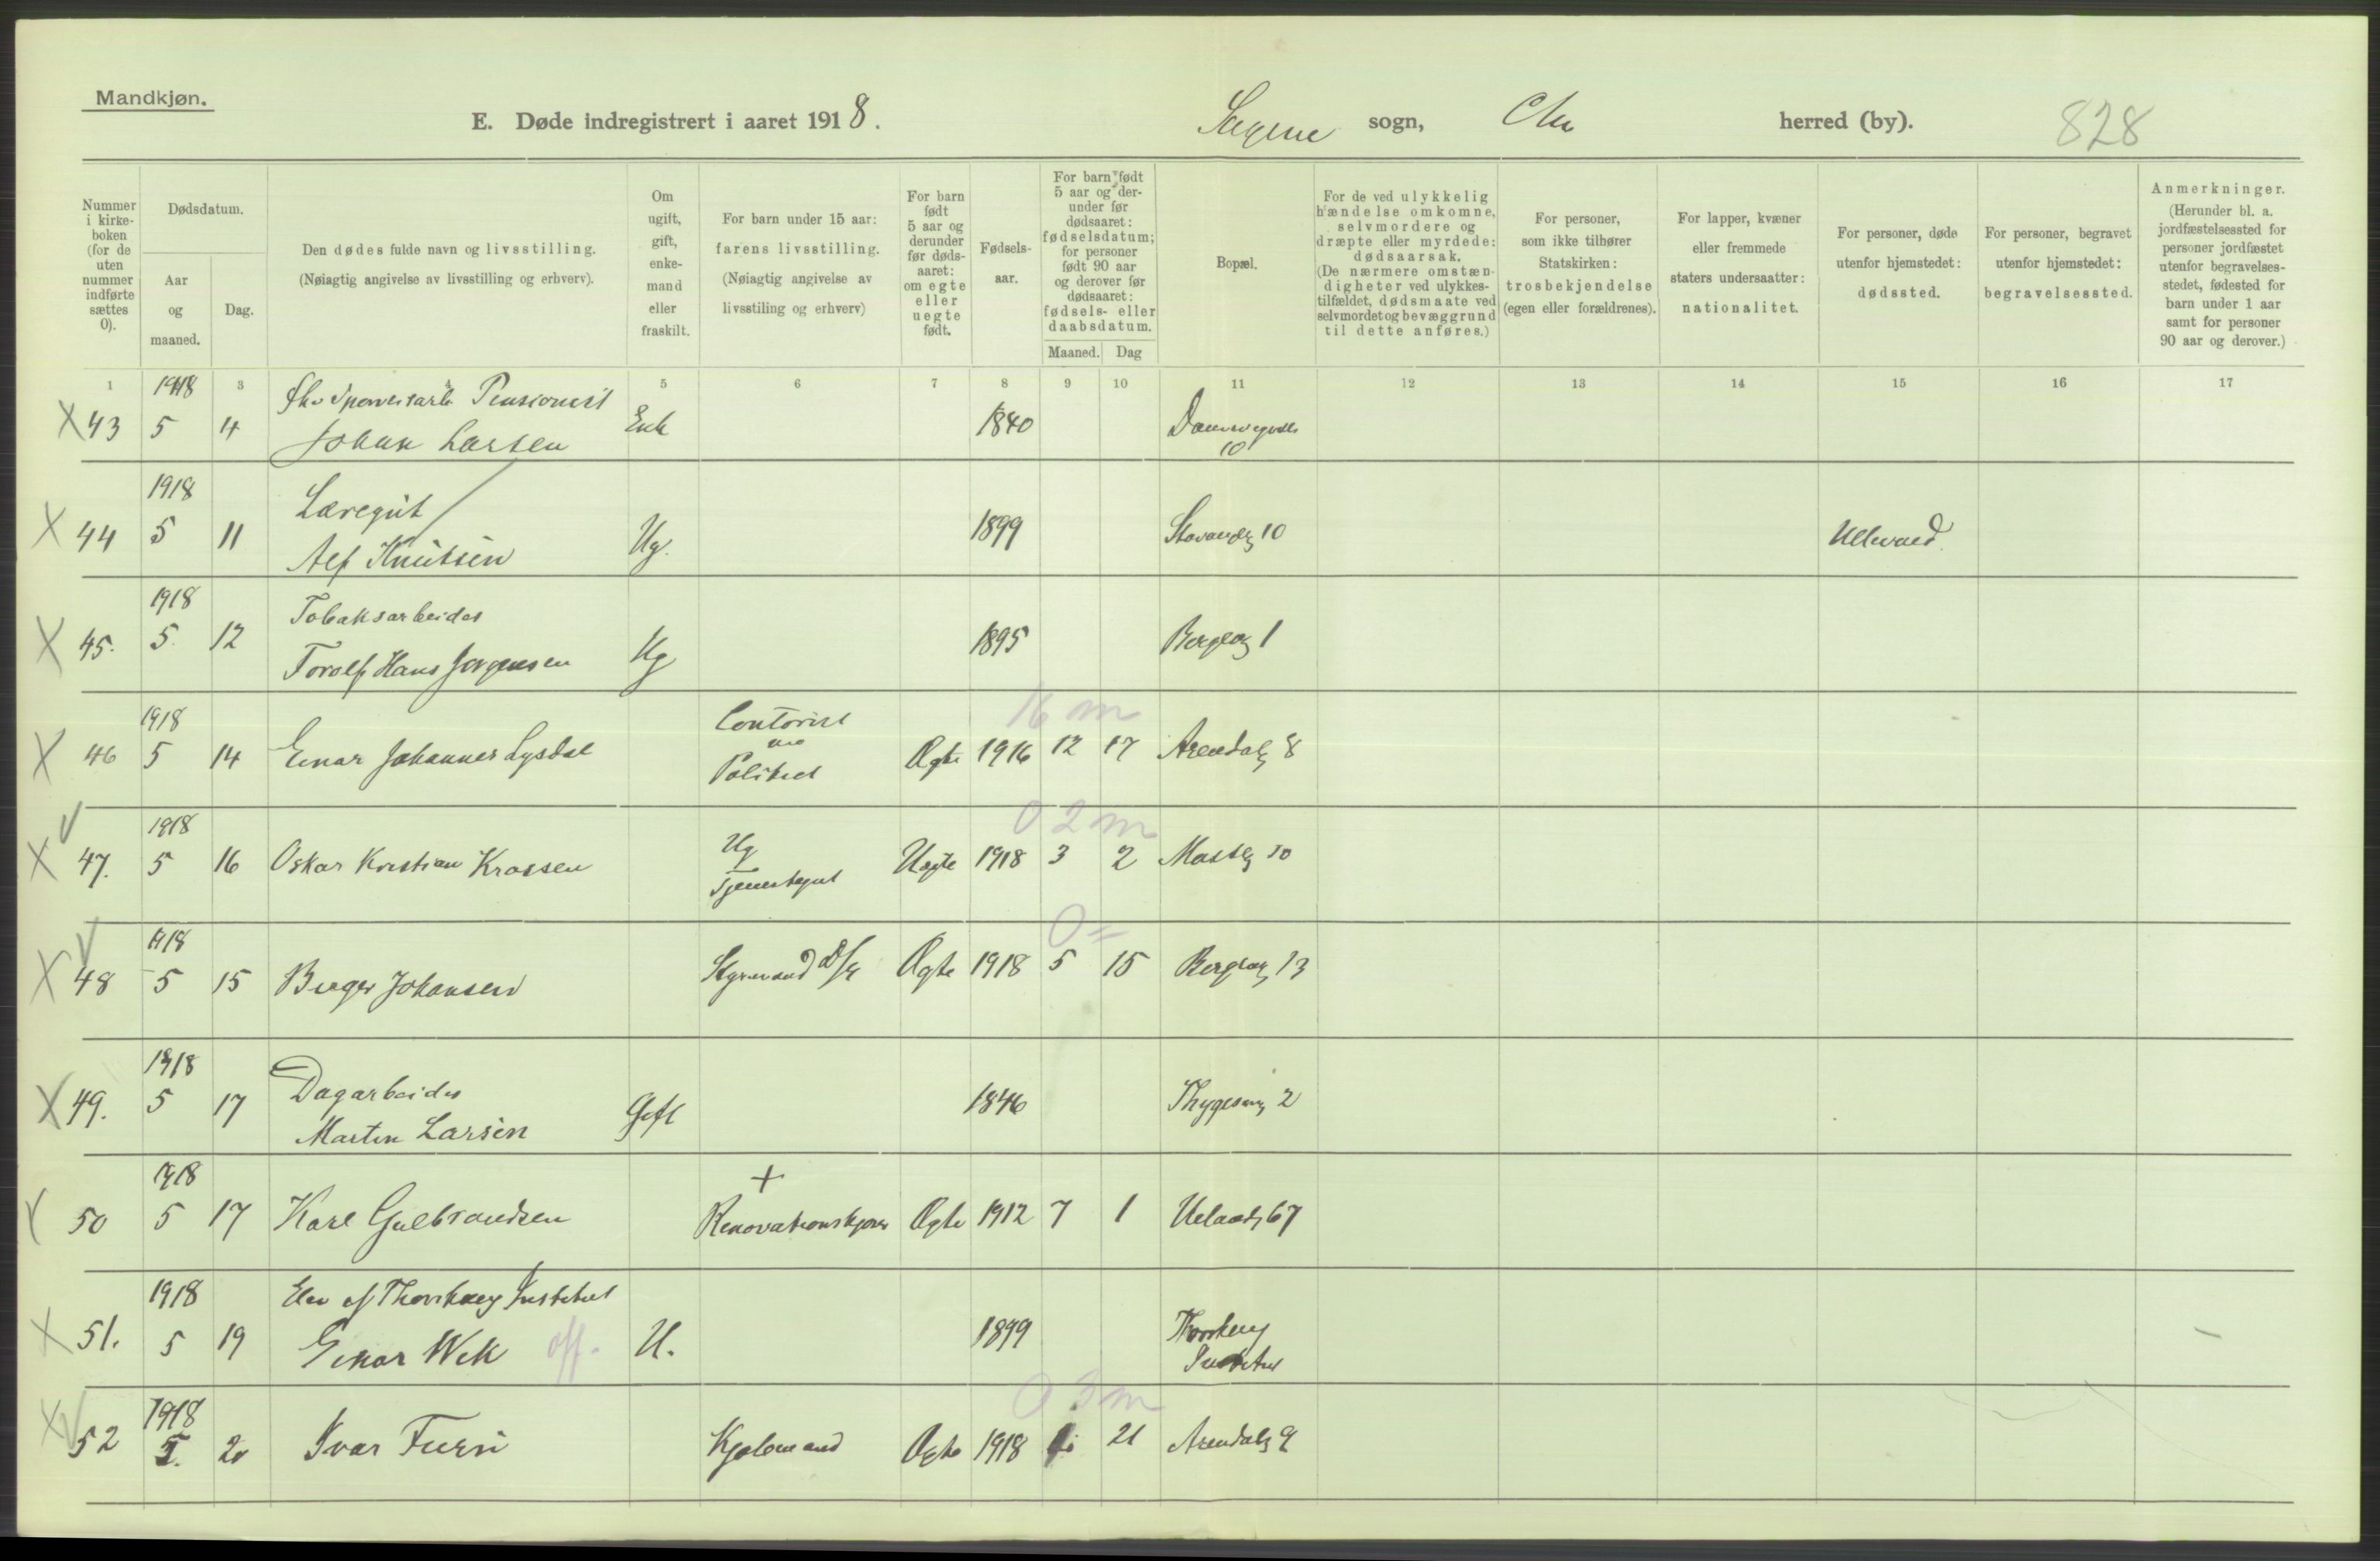 Mandkjøn.
E. Døde indregistrert i aaret 1918.
Sagene sogn, Chra herred (by).
828
Nummer i kirke-boken (for de uten nummer indførte sættes 0).
Dødsdatum.
Aar og maaned.
Dag.
Den dødes fulde navn og livsstilling.
(Nøiagtig angivelse av livsstilling og erhverv).
Om ugift, gift, enke-mand eller fraskilt.
For barn under 15 aar:
farens livsstilling.
(Nøiagtig angivelse av livsstiling og erhverv)
For barn født 5 aar og derunder før døds-aaret: om egte eller uegte født.
Fødsels-aar.
For barn født 5 aar og der-under før dødsaaret: fødselsdatum; for personer født 90 aar og derover før dødsaaret: fødsels- eller daabsdatum.
Maaned. Dag
Bopæl.
For de ved ulykkelig hændelse omkomne, selvmordere og dræpte eller myrdede: dødsaarsak.
(De nærmere omstæn-digheter ved ulykkes-tilfældet, dødsmaate ved selvmordet og bevæggrund til dette anføres.)
For personer, som ikke tilhører Statskirken: trosbekjendelse (egen eller forældrenes).
For lapper, kvæner eller fremmede staters undersaatter: nationalitet.
For personer, døde utenfor hjemstedet: dødssted.
For personer, begravet utenfor hjemstedet: begravelsessted.
Anmerkninger.
(Herunder bl. a. jordfæstelsessted for personer jordfæstet utenfor begravelses-stedet, fødested for barn under 1 aar samt for personer 90 aar og derover.)
1 3 5 6 7 8 9 10 11 12 13 14 15 16 17
1918 Pensionist
X 43 5 4 Johan Larsen Enk 1840
10
1918 Læregut
X 44 5 11 Alf Knutsen Ug. 1899 Stavangg 10 Ullevaal
1918 Tobaksarbeider
X 45. 5. 12 Torolf Hans Jørgensen Ug 1895 Bergsg 1
16 m
1918 Contorist
ved
X 46 5 14 Einar Johannes Lysdal Politiet Ægte 1916 12 17 Arendalg 8
0 2 m
1918 Ug
X 47. 5 16 Oskar Kristian Krossen Tjenestepike Uegte 1918 3 2 Mossg 10
0 =
1918
X 48 5 15 Birger Johansen Styrmand Ægte 1918 5 15 Bergsg 13
1918 Dagarbeider
X 49. 5 17 Martin Larsen Gift 1846 Thygesensg 2
1918 +
50 5 17 Kare Gulbrandsen Renovationskjører Ægte 1912 7 1 Uelandsg 67
1918 Elev af Thorshaug Institut
X 51. 5 19 Einar Wik off. U. 1899 Thorshaug
Institut
0 3 m
1918
X 52 5. 20 Ivar Furu Kjølemand Ægte 1918 1 21 Arendalsg 9